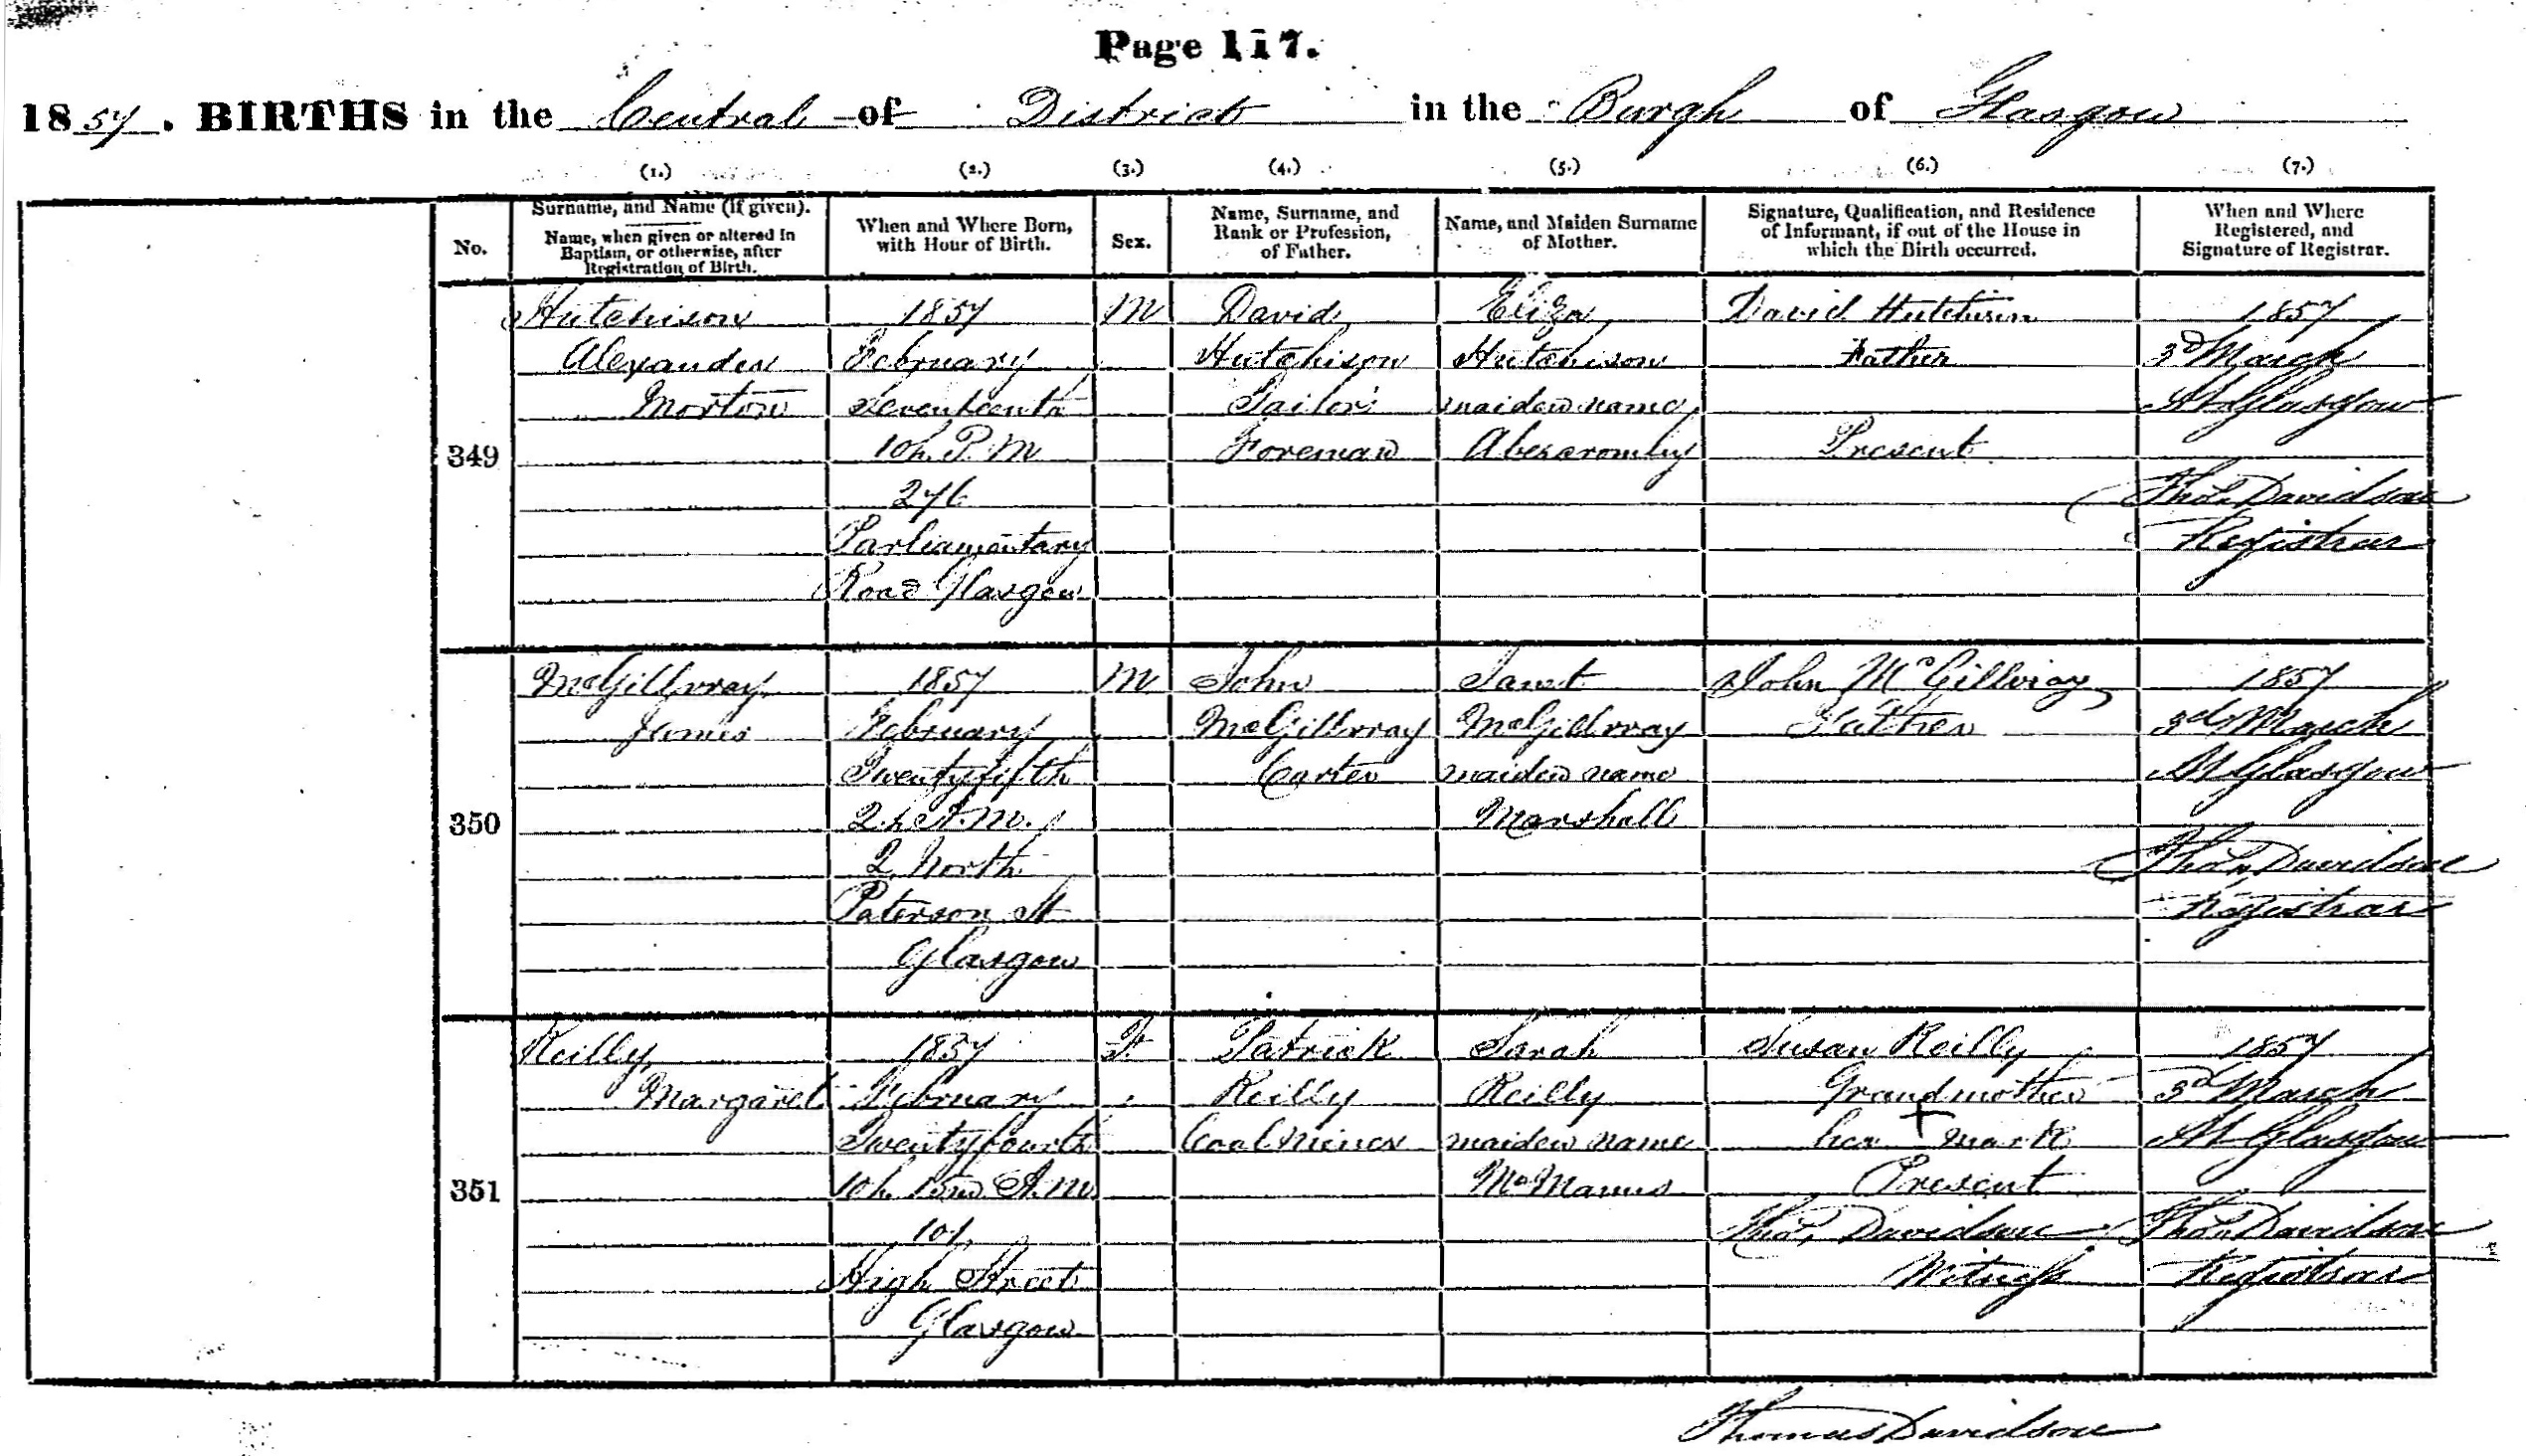 Page 117.
1857. BIRTHS in the Central of District in the Burgh of Glasgow
(1.) (2.) (3.) (4.) (5.) (6.) (7.)
No.
Surname, and Name (if given).
Name, when given or altered in
Baptism, or otherwise, after
Registration of Birth.
When and Where Born,
with Hour of Birth.
Sex.
Name, Surname, and
Rank or Profession,
of Father.
Name, and Maiden Surname
of Mother.
Signature, Qualification, and Residence
of Informant, if out of the House in
which the Birth occurred.
When and Where
Registered, and
Signature of Registrar.
349
Hutchison
Alexander
Morton
1857
February
Seventeenth
10h. P.M
276
Parliamentary
Road Glasgow
M
David
Hutchison
Tailor
Foreman
Eliza
Hutchison
maiden name
Abercromby
David Hutchison
Father
Present
1857
3d March
At Glasgow
Thos. Davidson
Registrar
350
McGillvray
James
1857
February
Twenty fifth
2h A.M.
2 North
Paterson St
Glasgow
M
John
McGillvray
Carter
Janet
McGillvray
maiden name
Marshall
John McGillvray
Father
1857
3d March
At Glasgow
Thos. Davidson
Registrar
351
Reilly
Margaret
1857
February
Twenty fourth
10h. 15m A.M
101
High Street
Glasgow
F
Patrick
Reilly
Coal Miner
Sarah
Reilly
maiden name
McManus
Susan Reilly
Grandmother
her + mark
Present
Thos. Davidson
Witness
1857
3d March
At Glasgow
Thos. Davidson
Registrar
Thomas Davidson